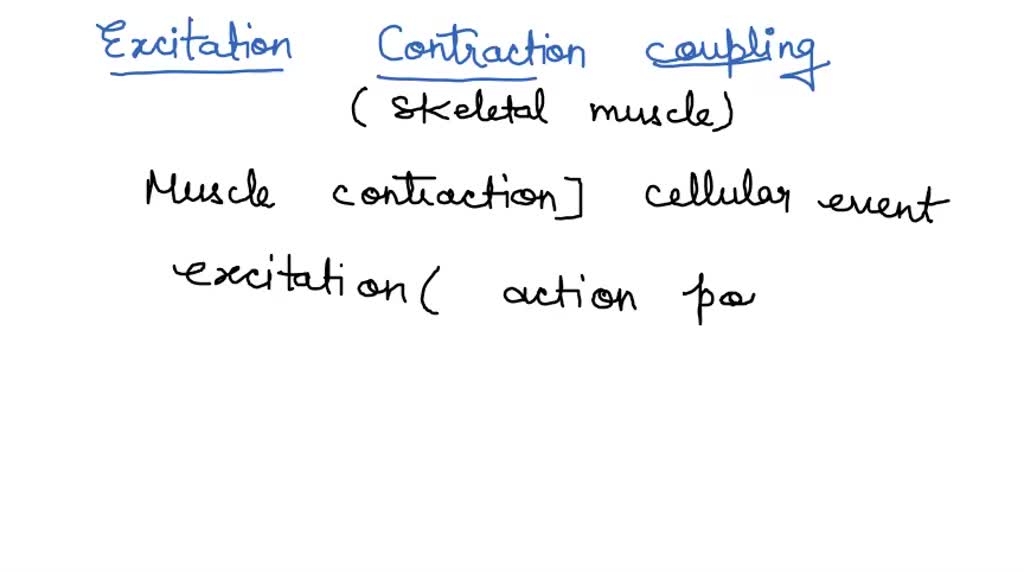 Excitation Contraction coupling
(skeletal muscle)
Muscle contraction] cellular event
excitation( action po